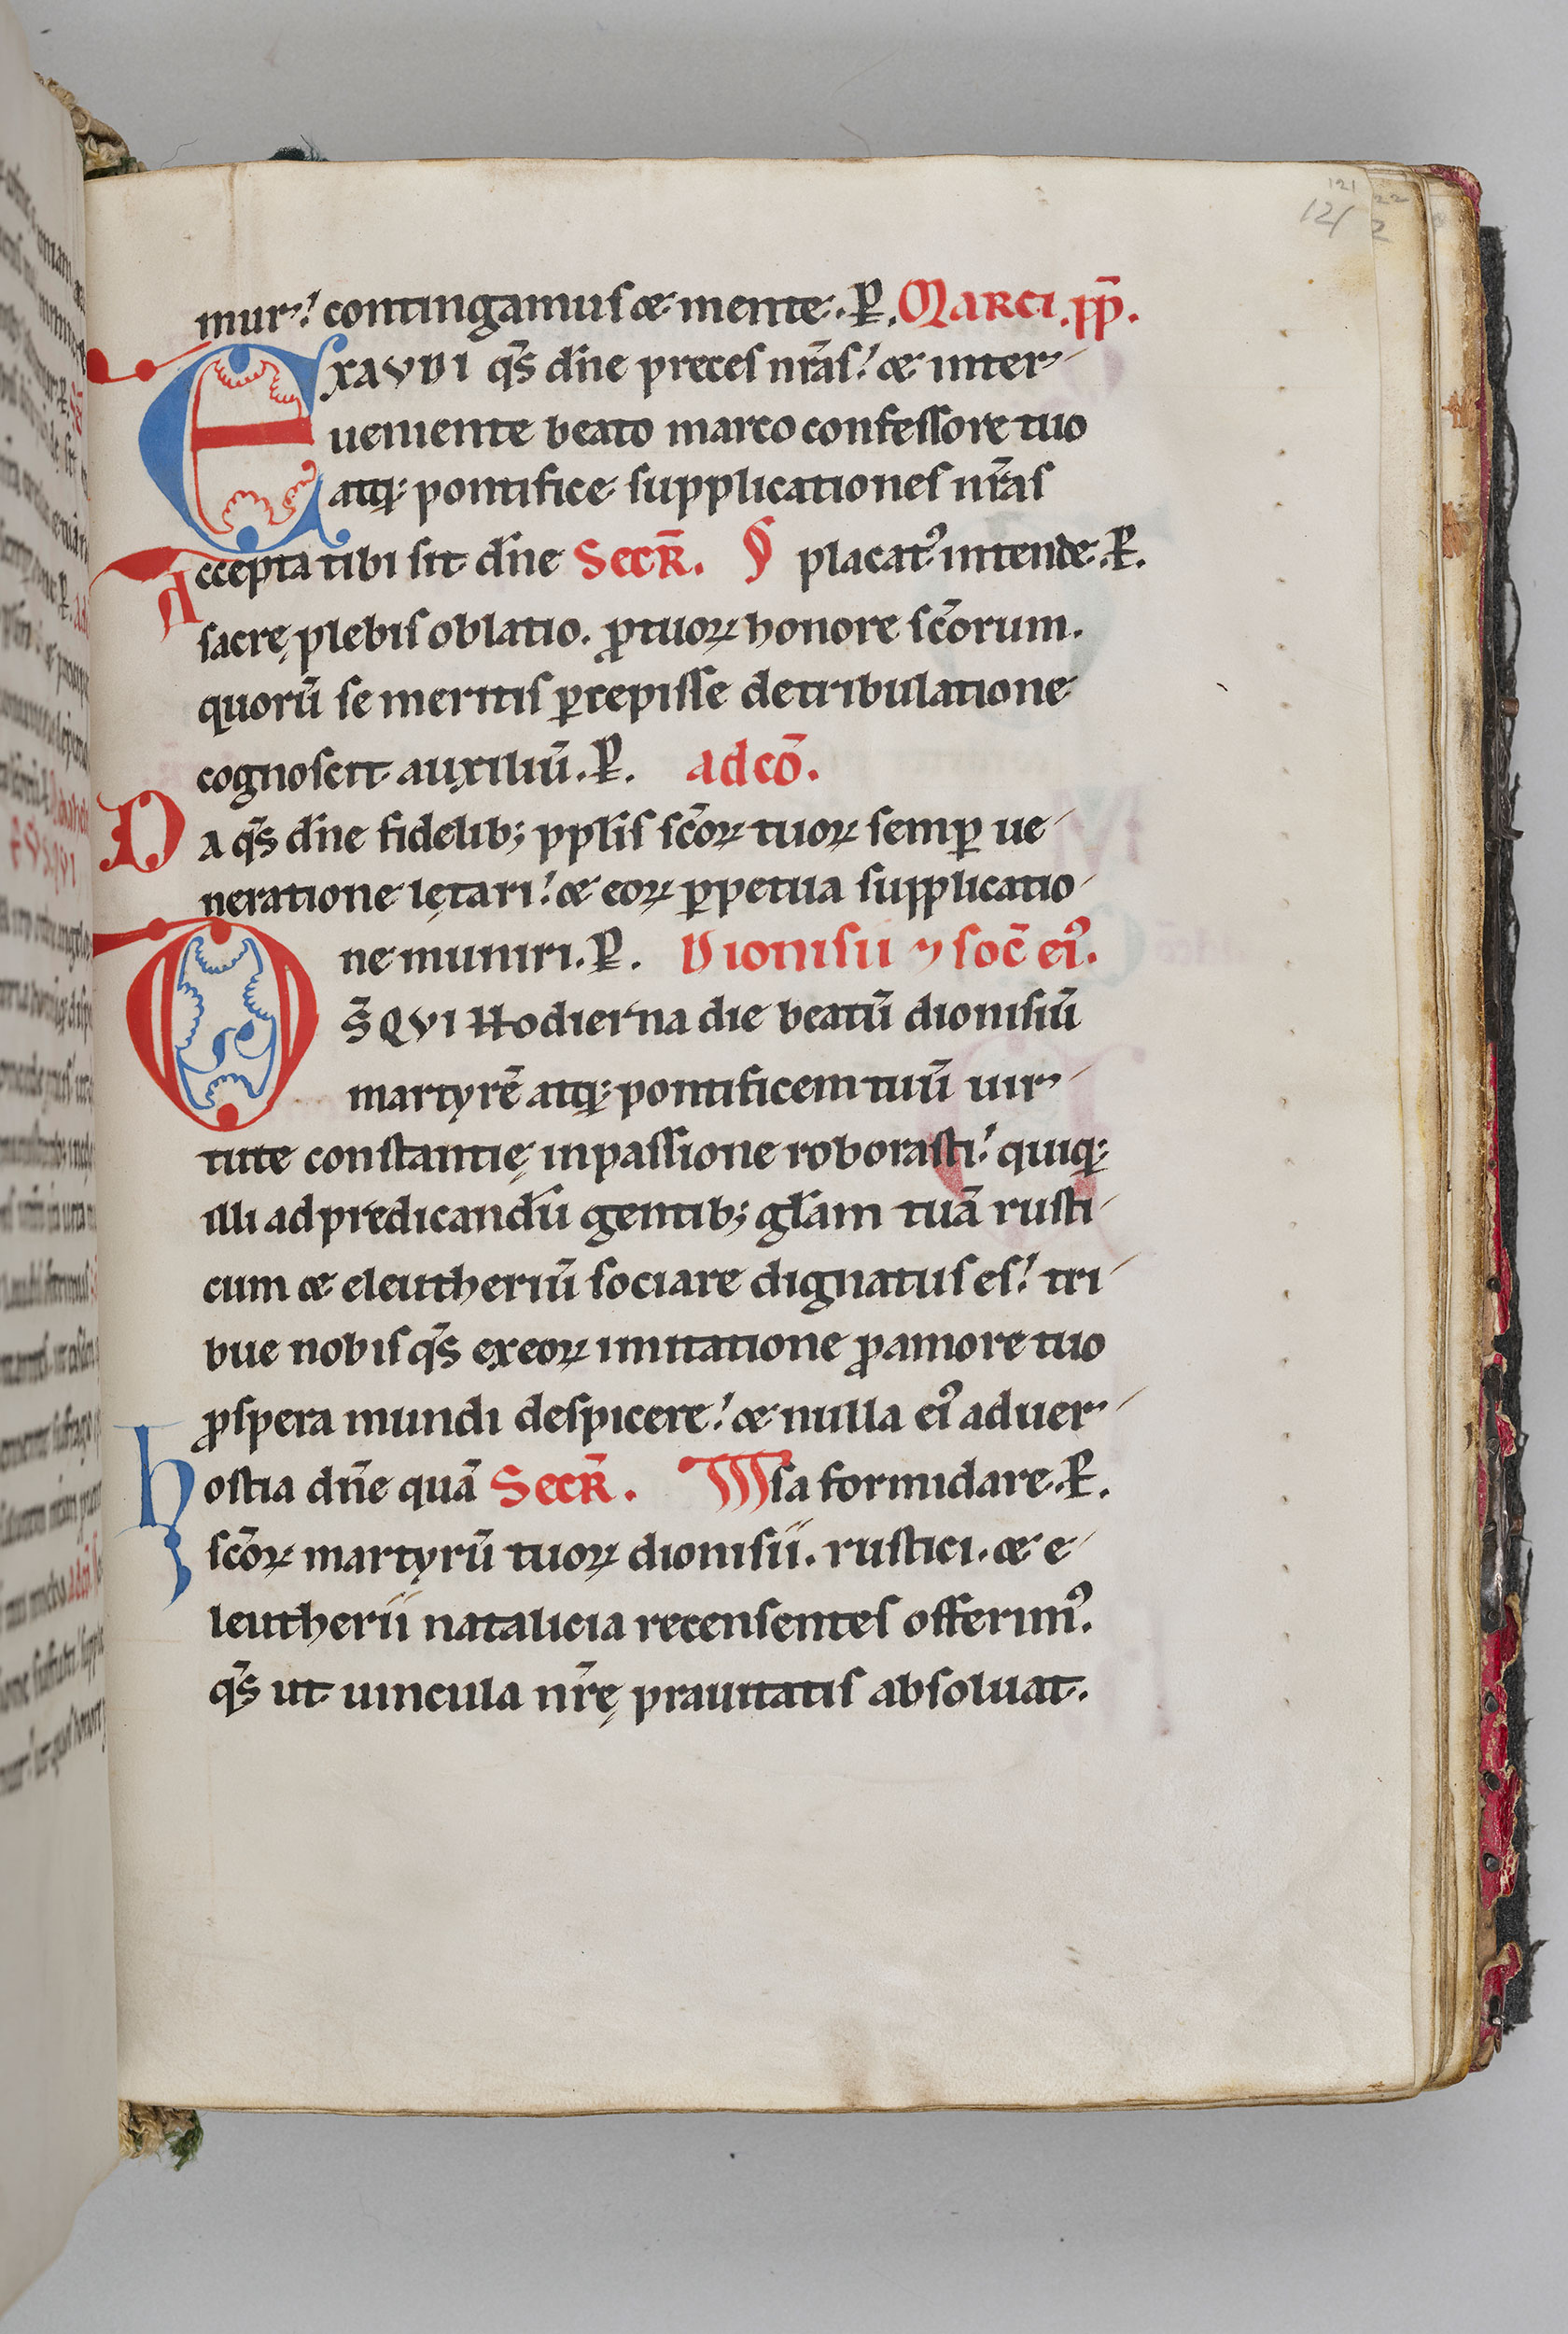 121
121
mur. contingamus & mente. P. Marci. pp̄.
EXAUDI qs̄ dn̄e preces nr̄as. & inter-
ueniente beato marco confessore tuo
atq; pontifice supplicationes nr̄as
Accepta tibi sit dn̄e Secr̄. placatꝰ intende. P.
sacrę plebis oblatio. ꝓ tuoꝝ honore sc̄orum.
quorū se meritis ꝑcepisse de tribulatione
cognoscit auxiliū. P. ad cō.
Da qs̄ dn̄e fidelib; pplis sc̄oꝝ tuoꝝ semꝑ ue-
neratione lętari. & eoꝝ ꝑpetua supplicatio-
ne muniri. P. Dionisii ⁊ soc̄ eiꝰ.
DS̄ QUI Hodierna die beatū dionisiū
martyrē atq; pontificem tuū uir-
tute constantię in passione roborasti. quiq;
illi ad predicandū gentib; gl̄am tuā rusti-
cum & eleutheriū sociare dignatus es. tri-
bue nobis qs̄ ex eoꝝ imitatione ꝓ amore tuo
ꝓspera mundi despicere. & nulla eiꝰ aduer-
hostia dn̄e quā Secr̄. sa formidare. P.
sc̄oꝝ martyrū tuoꝝ dionisii. rustici. & e-
leutherii natalicia recensentes offerimꝰ.
qs̄ ut uincula nr̄ę prauitatis absoluat.